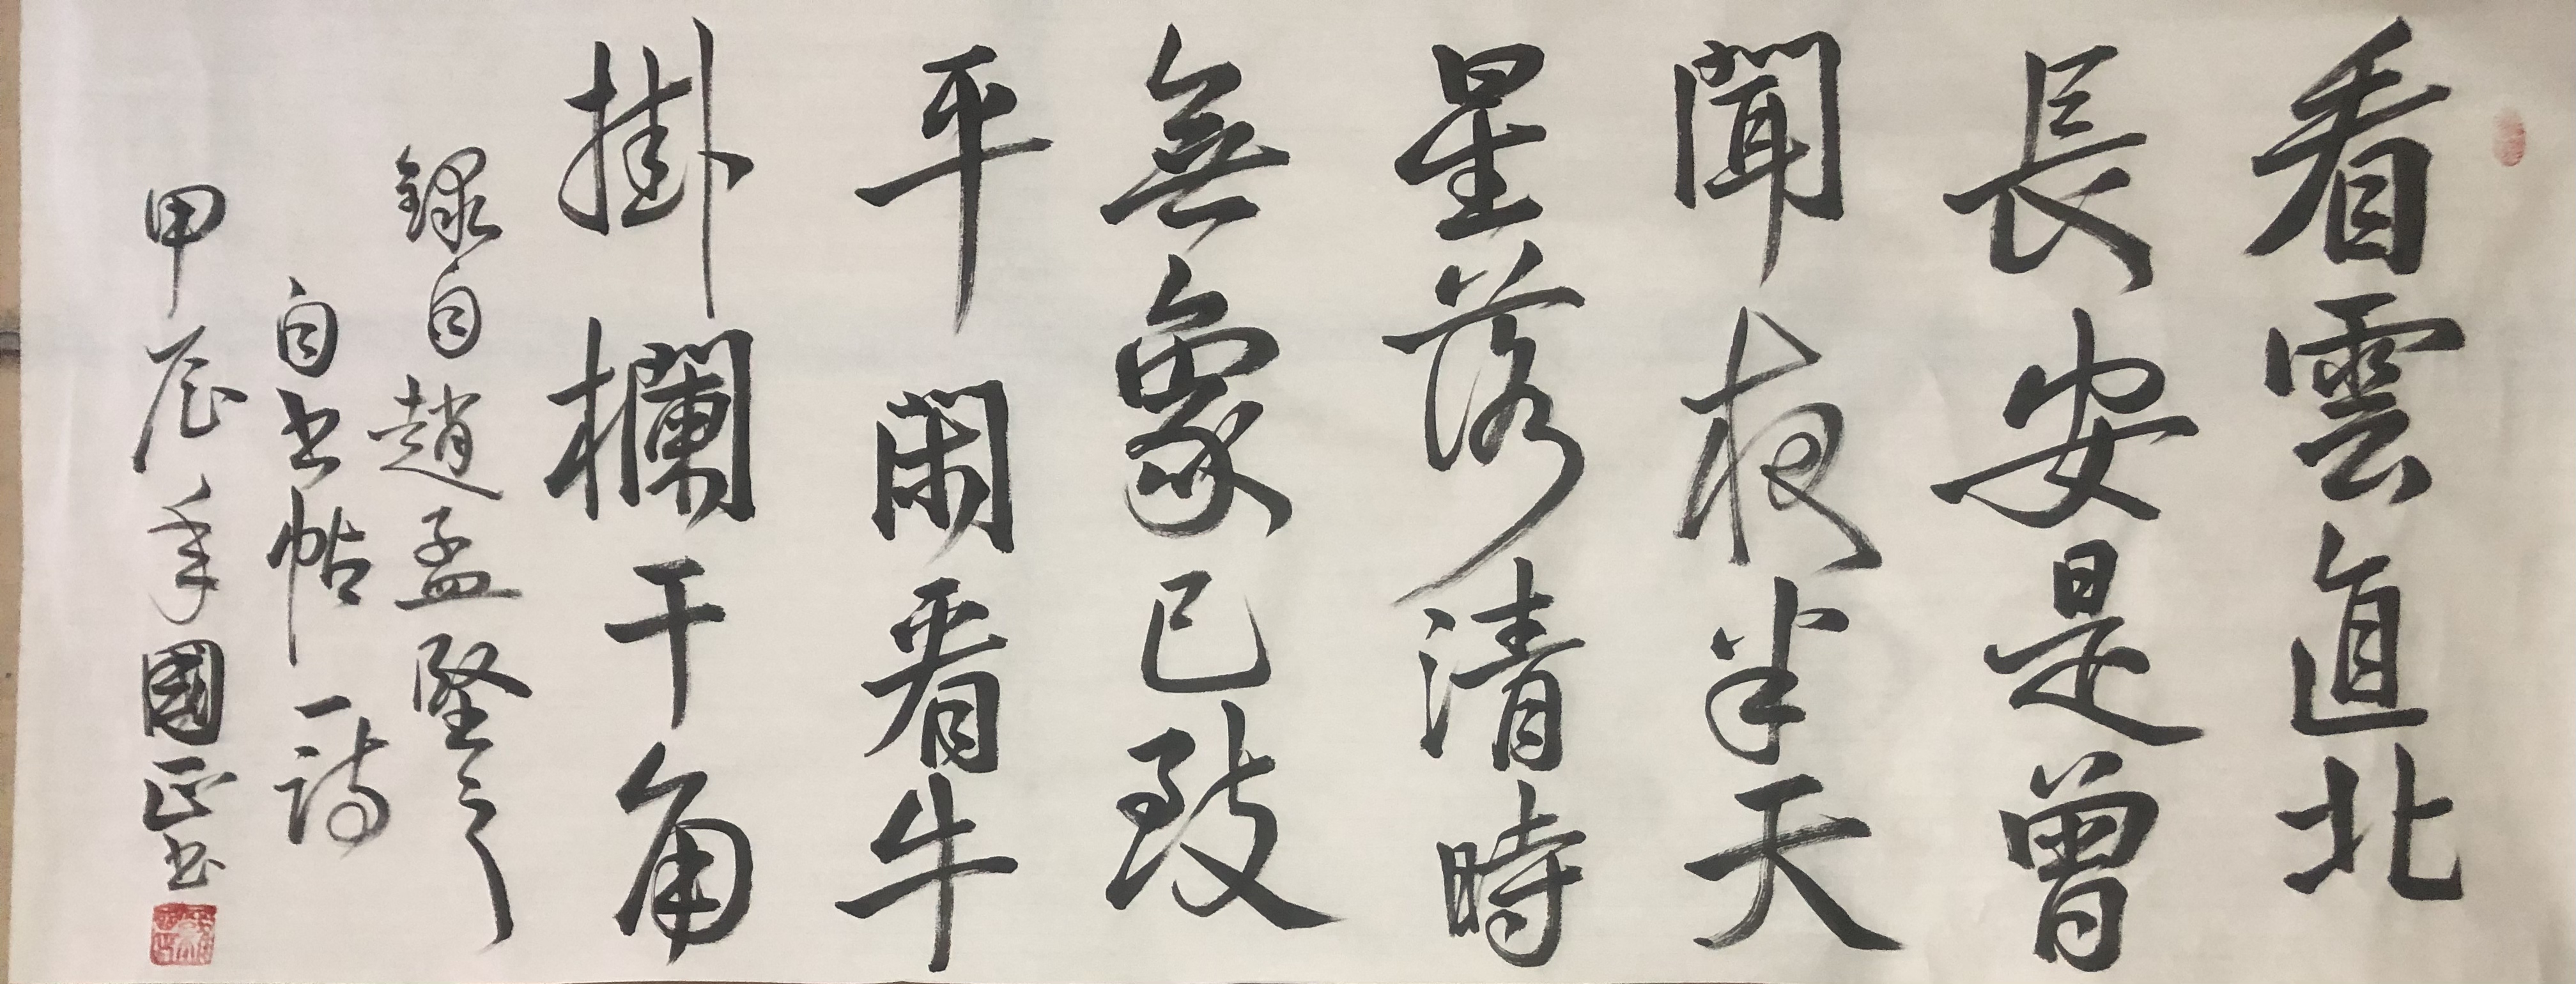 看雲直北
長安是曾
聞夜半天
星落清時
無象已致
平閑看牛
掛欄干角
録自趙孟堅之
自書帖一詩
甲辰年國正書